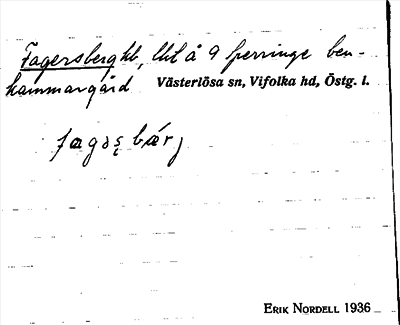 Fagersberg hb, lht å 9 perringe ben-
hammargård Västerlösa sn, Vifolka hd, Östg. l.
fagəş bǽrj
ERIK NORDELL 1936